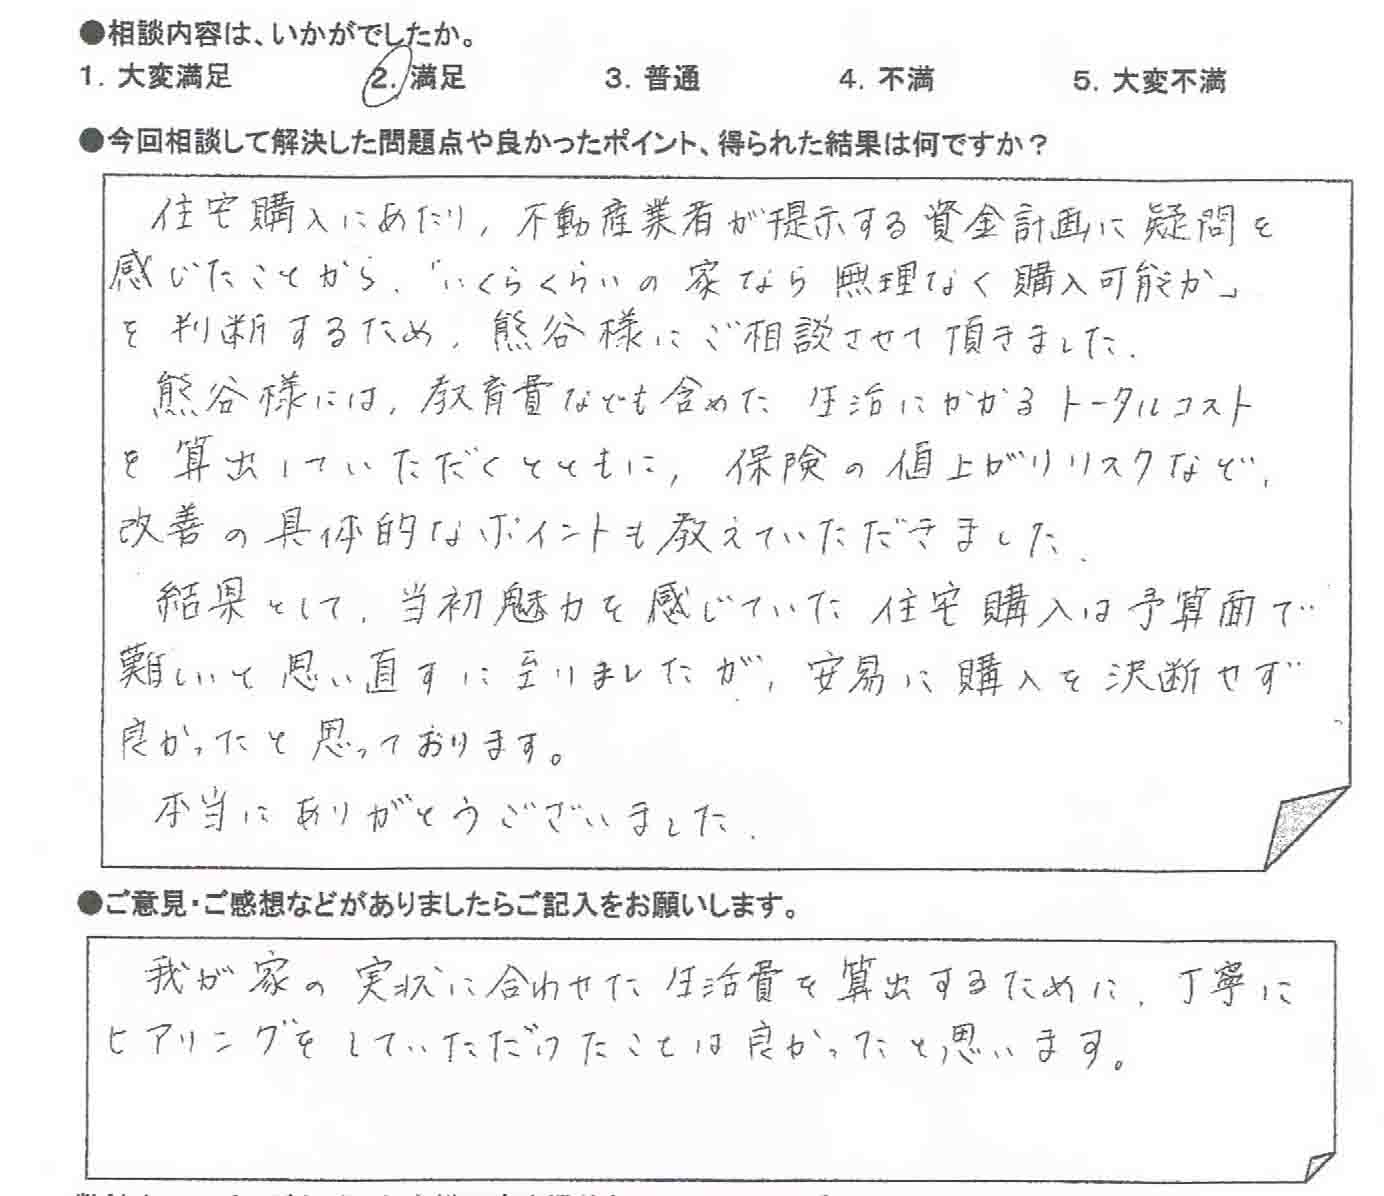 ●相談内容は、いかがでしたか。
1. 大変満足 2. 満足 3. 普通 4. 不満 5. 大変不満
●今回相談して解決した問題点や良かったポイント、得られた結果は何ですか？
住宅購入にあたり、不動産業者が提示する資金計画に疑問を
感じたことから、「いくらくらいの家なら無理なく購入可能か」
を判断するため、熊谷様にご相談させて頂きました。
熊谷様には、教育費なども含めた生活にかかるトータルコスト
を算出していただくとともに、保険の値上がりリスクなど、
改善の具体的なポイントも教えていただきました。
結果として、当初魅力を感じていた住宅購入は予算面で
難しいと思い直すに至りましたが、安易に購入を決断せず
良かったと思っております。
本当にありがとうございました。
●ご意見・ご感想などがありましたらご記入をお願いします。
我が家の実状に合わせた生活費を算出するために、丁寧に
ヒアリングをしていただけたことは良かったと思います。